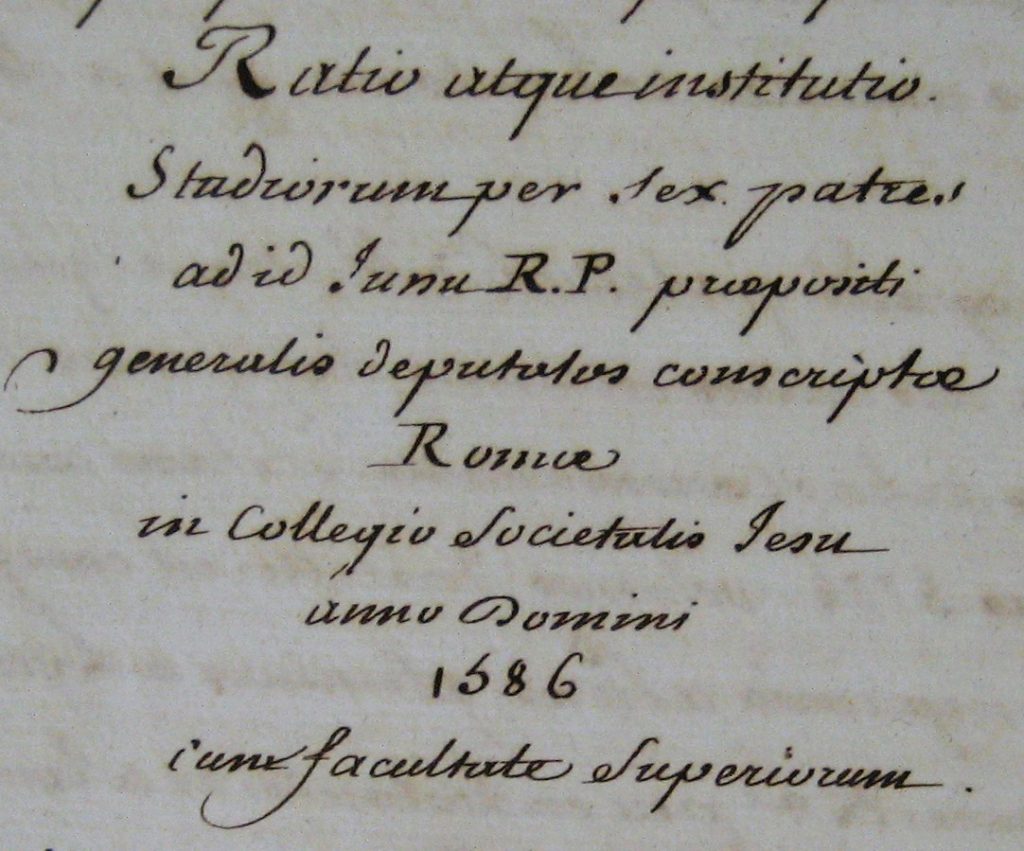 Ratio atque institutio.
Studiorum per sex patres
ad id Jussu R.P. præpositi
generalis deputatos conscriptæ
Romæ
in Collegio Societatis Jesu
anno Domini
1586
cum facultate Superiorum.